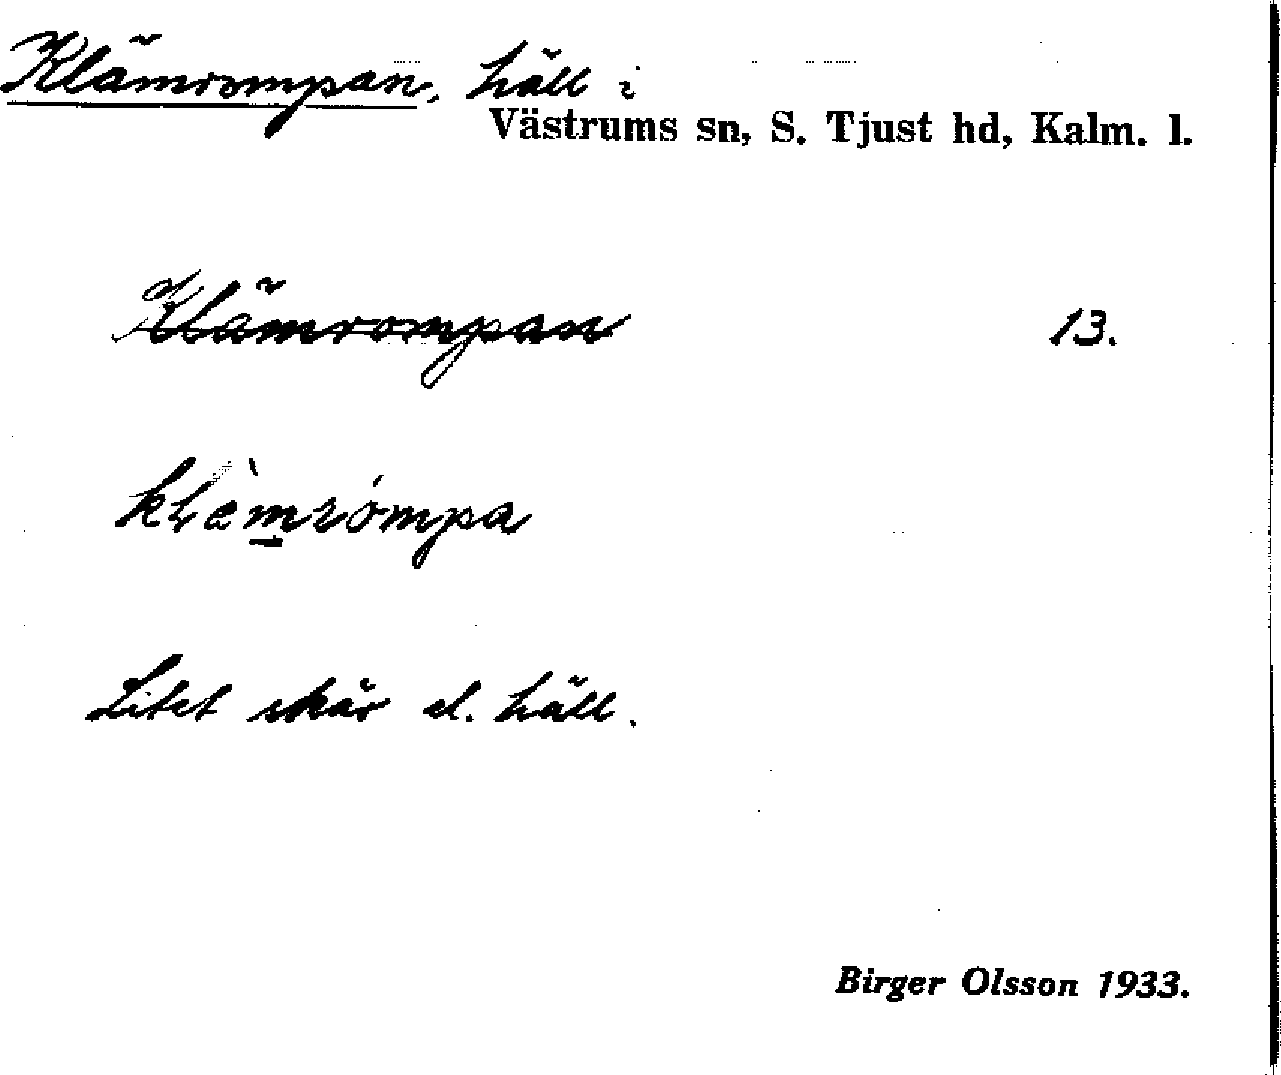 Klämrompan, häll i
Västrums sn, S. Tjust hd, Kalm. l.
Klämrompan 13.
klèmrómpa
Litet skär el. häll.
Birger Olsson 1933.